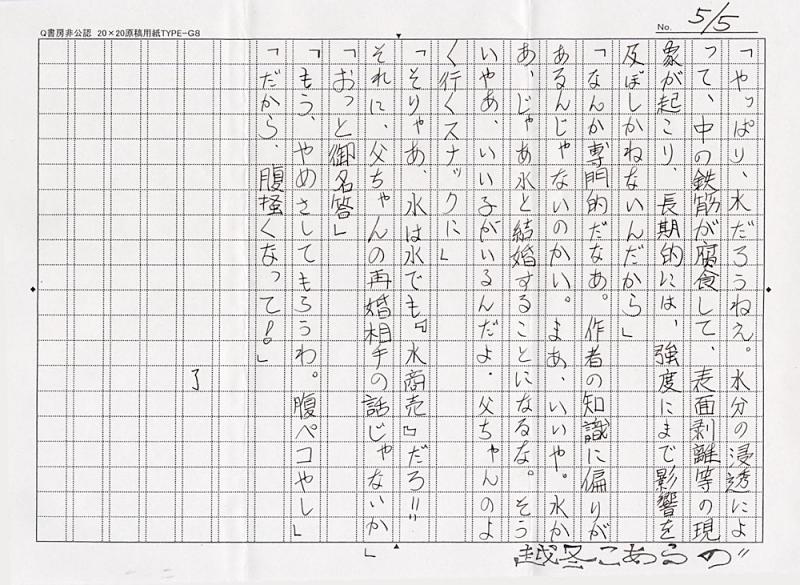 Q書房非公認 20×20原稿用紙TYPE-G8
No. 5/5
「やっぱり、水だろうねえ。水分の浸透によ
って、中の鉄筋が腐食して、表面剥離等の現
象が起こり、長期的には、強度にまで影響を
及ぼしかねないんだから」
「なんか専門的だなあ。作者の知識に偏りが
あるんじゃないのかい。まあ、いいや。水か
あ、じゃあ水と結婚することになるな。そう
いやあ、いい子がいるんだよ、父ちゃんのよ
く行くスナックに」
「そりゃあ、水は水でも『水商売』だろ!!
それに、父ちゃんの再婚相手の話じゃないか」
「おっと御名答」
「もう、やめさしてもろうわ。腹ペコやし」
「だから、腹掻くなって!」
了
越冬こあらの